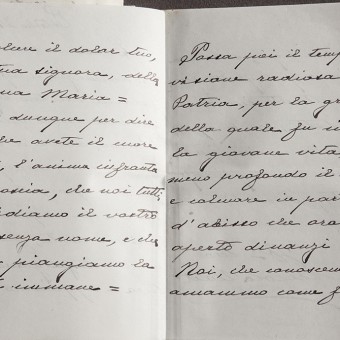 il dolor tuo,
signora, della
ua Maria =
dunque per dire
he avete il more
l'anima infranta
che noi tutti
diamo il vostro
senza nome, e che
piangiamo la
immane =
Possa poi il temp
visione radiosa
Patria, per la gr
della quale fu i
la giovane vita
meno profondo il
e colmare in par
d'abisso che ora
aperto dinanzi
Noi, che conoscem
amammo come f